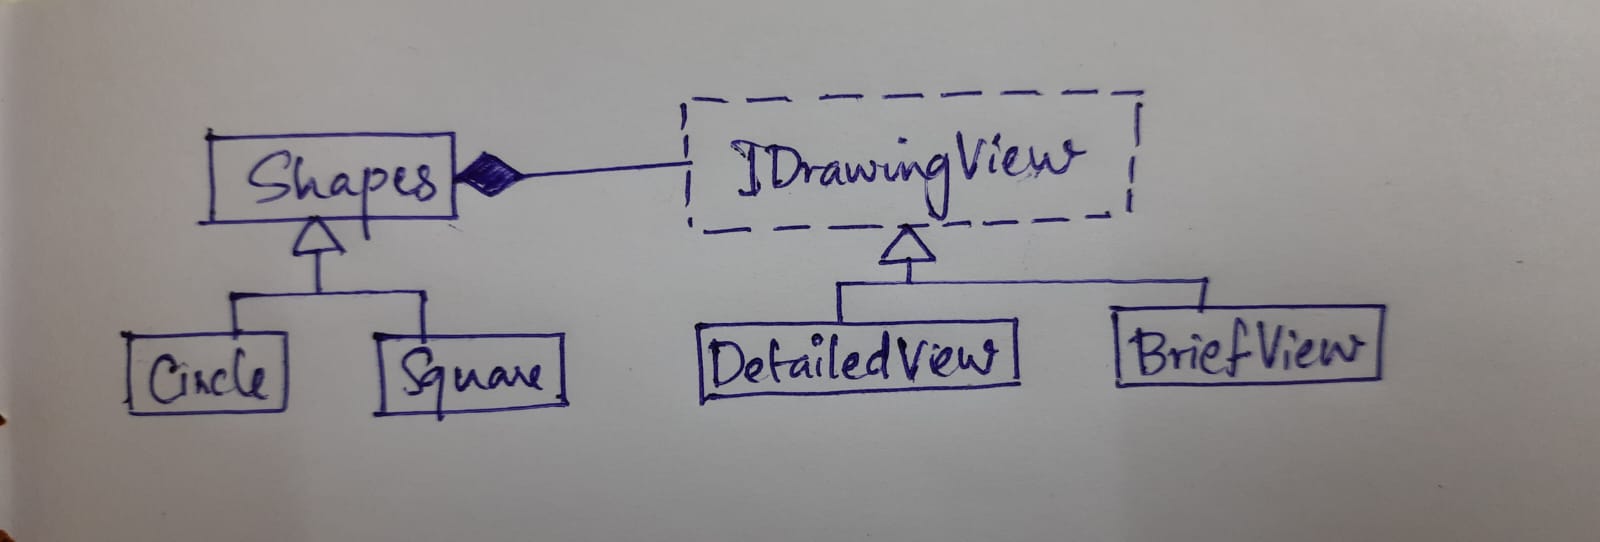 Shapes
IDrawingView
Circle
Square
DetailedView
BriefView